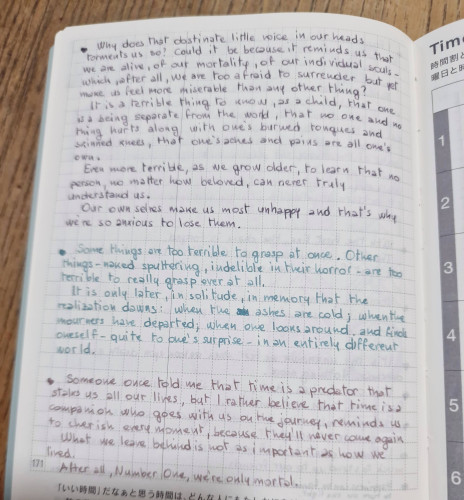 • Why does that obstinate little voice in our heads
torments us so? Could it be because it reminds us that
we are alive, of our mortality, of our individual souls-
which, after all, we are too afraid to surrender but yet
make us feel more miserable than any other thing?
It is a terrible thing to know, as a child, that one
is a being separate from the world, that no one and no
thing hurts along with one's burned tongues and
skinned knees, that one's aches and pains are all one's
own.
Even more terrible, as we grow older, to learn that no
person, no matter how beloved, can never truly
understand us.
Our own selves make us most unhappy and that's why
we're so anxious to lose them.
• Some things are too terrible to grasp at once. Other
things - naked sputtering, indelible in their horror - are too
terrible to really grasp ever at all.
It is only later, in solitude, in memory that the
realization dawns: when the ashes are cold; when the
mourners have departed; when one looks around and finds
oneself - quite to one's surprise - in an entirely different
world.
• Someone once told me that time is a predator that
stalks us all our lives, but I rather believe that time is a
companion who goes with us on the journey, reminds us
to cherish every moment, because they'll never come again
What we leave behind is not as important as how we
lived.
After all, Number One, we're only mortal.
171
「いい時間」だなぁと思う時間は、どんな
Time
時間割と
曜日と時
1
2
3
4
5
6